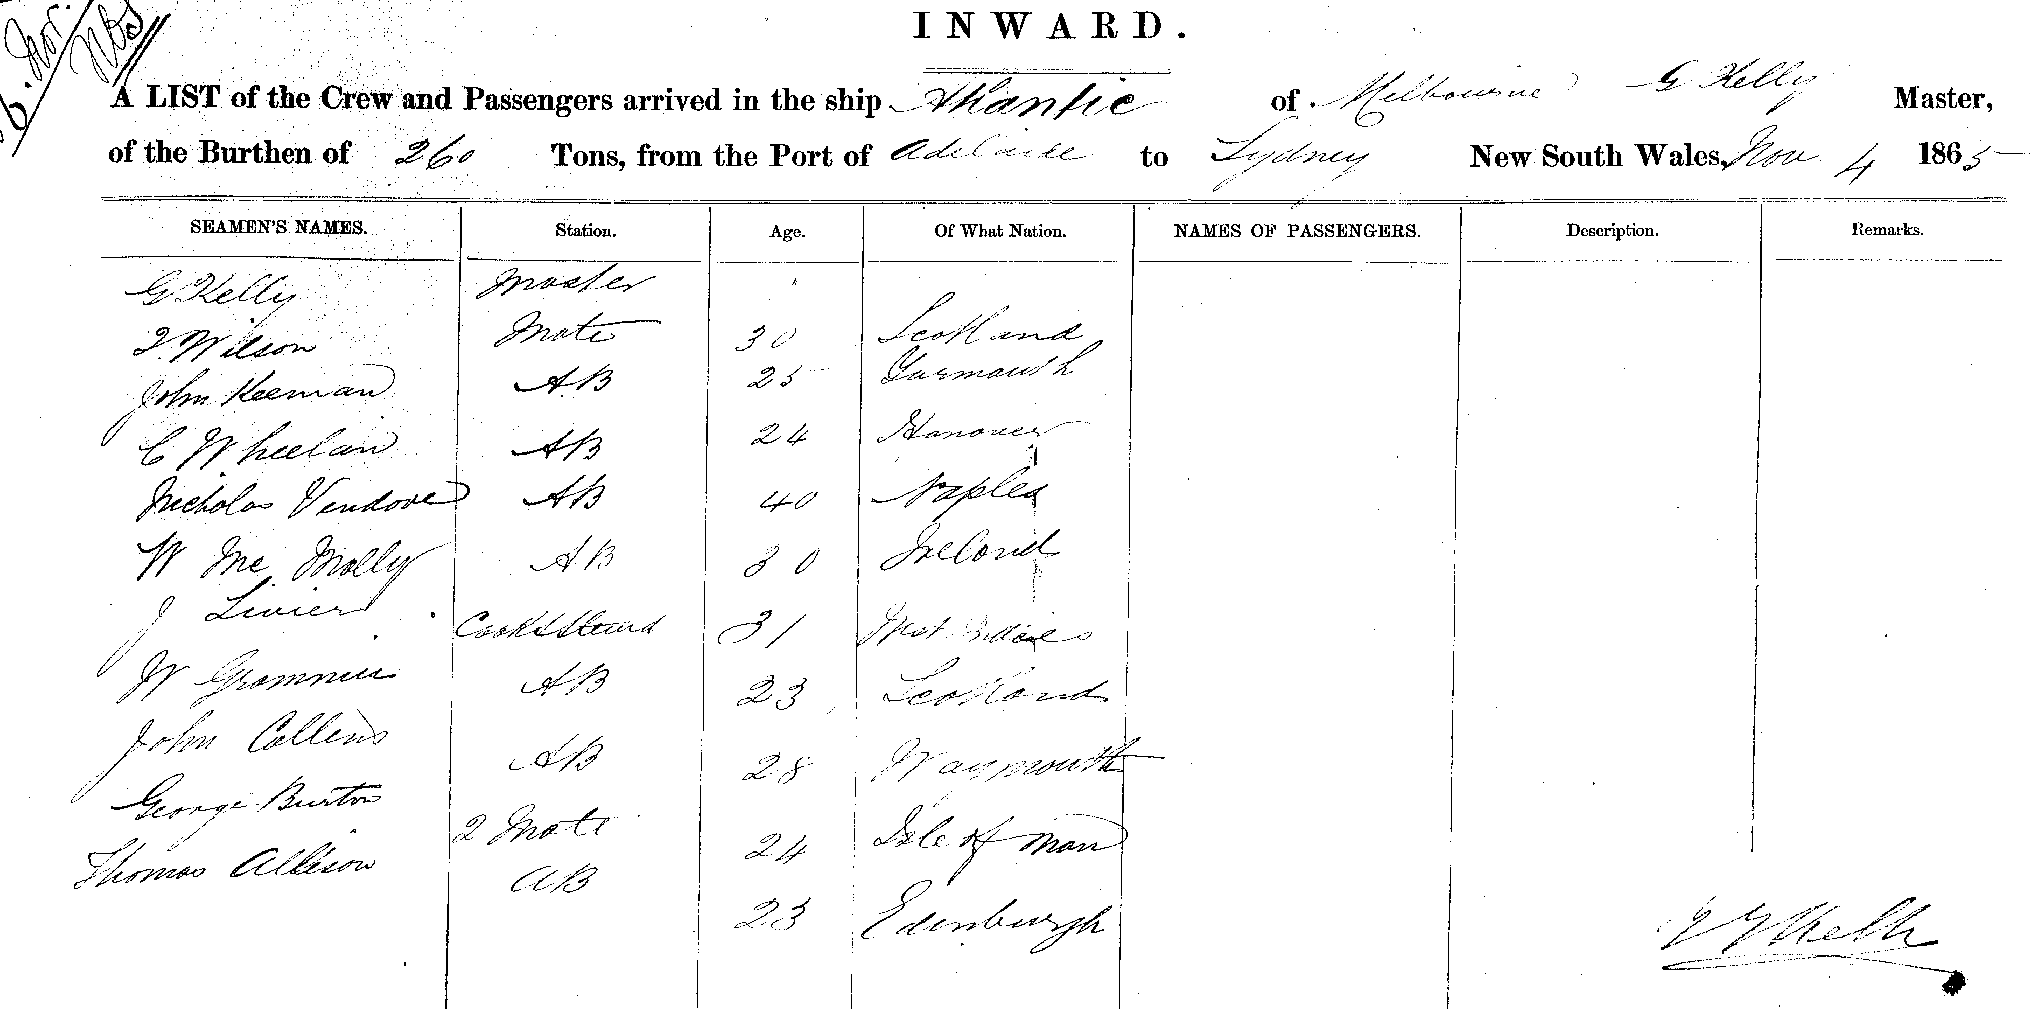 6. Nov.
INWARD.
A LIST of the Crew and Passengers arrived in the ship Atlantic of Melbourne G Kelly Master,
of the Burthen of 260 Tons, from the Port of Adelaide to Sydney New South Wales, Nov 4 1865
SEAMEN'S NAMES. Station. Age. Of What Nation. NAMES OF PASSENGERS. Description. Remarks.
G Kelly Master
Wilson Mate 30 Scotland
John Keenan AB 25 Yarmouth
C Wheelan AB 24 Hanover
Nicholas Vendove AB 40 Naples
W Mc Molly AB 30 Ireland
J Livier Cook & Steward 31 West Indies
W Grommie AB 23 Scotland
John Collens AB 28 Waymouth
George Burton 2 Mate 24 Isle of Man
Thomas Allison AB 23 Edinburgh
Kelly